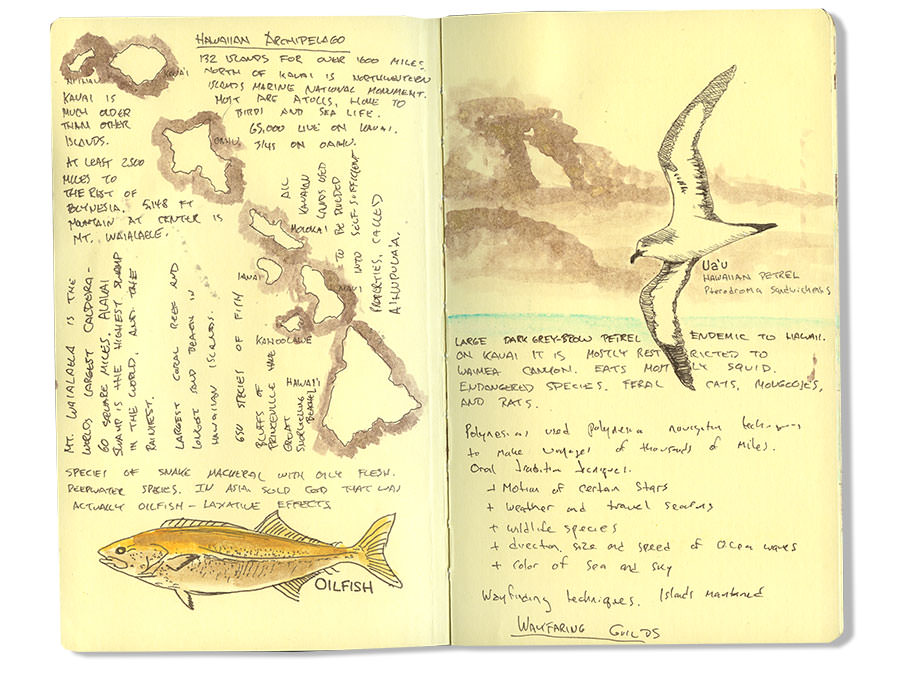 HAWAIIAN ARCHIPELAGO
132 ISLANDS FOR OVER 1600 MILES.
NORTH OF KAUAI IS NORTHWESTERN
ISLANDS MARINE NATIONAL MONUMENT.
MOST ARE ATOLLS, HOME TO
BIRDS AND SEA LIFE.
65,000 LIVE ON KAUAI.
3/4S ON OAHU.
KAUA'I
KAUAI IS
MUCH OLDER
THAN OTHER
ISLANDS.
OAHU
AT LEAST 2500
MILES TO
THE REST OF
POLYNESIA. 5,148 FT
MOUNTAIN AT CENTER IS
MT. WAIALAELE.
ALL
HAWAIIAN
LANDS USED
TO BE DIVIDED
INTO SELF-SUFFICIENT
PROPERTIES, CALLED
AHUPUA'A.
MOLOKAI
LANAI
MAUI
KAHOOLAWE
HAWAI'I
MT. WAIALAELA IS THE
WORLDS LARGEST CALDERA -
60 SQUARE MILES. ALAKAI
SWAMP IS THE HIGHEST SWAMP
IN THE WORLD, AND THE
RAINIEST.
LARGEST CORAL REEF AND
LONGEST SAND BEACH IN
HAWAIIAN ISLANDS.
650 SPECIES OF FISH
BLUFFS OF
PRINCEVILLE HAVE
GREAT
SNORKELING
BEACHES
SPECIES OF SNAKE MACKERAL WITH OILY FLESH.
DEEPWATER SPECIES. IN ASIA SOLD COD THAT WAS
ACTUALLY OILFISH - LAXATIVE EFFECTS
OILFISH
Ua'u
HAWAIIAN PETREL
Pterodroma Sandwichensis
LARGE DARK GREY-BROWN PETREL ENDEMIC TO HAWAII.
ON KAUAI IT IS MOSTLY RESTRICTED TO
WAIMEA CANYON. EATS MOSTLY SQUID.
ENDANGERED SPECIES. FERAL CATS, MONGOOSES,
AND RATS.
Polynesians used polynesian navigation techniques
to make voyages of thousands of miles.
Oral tradition techniques.
+ Motion of certain stars
+ weather and travel seasons
+ wildlife species
+ direction, size and speed of Ocean waves
+ color of sea and sky
Wayfinding techniques. Islands maintained
WAYFARING GUILDS